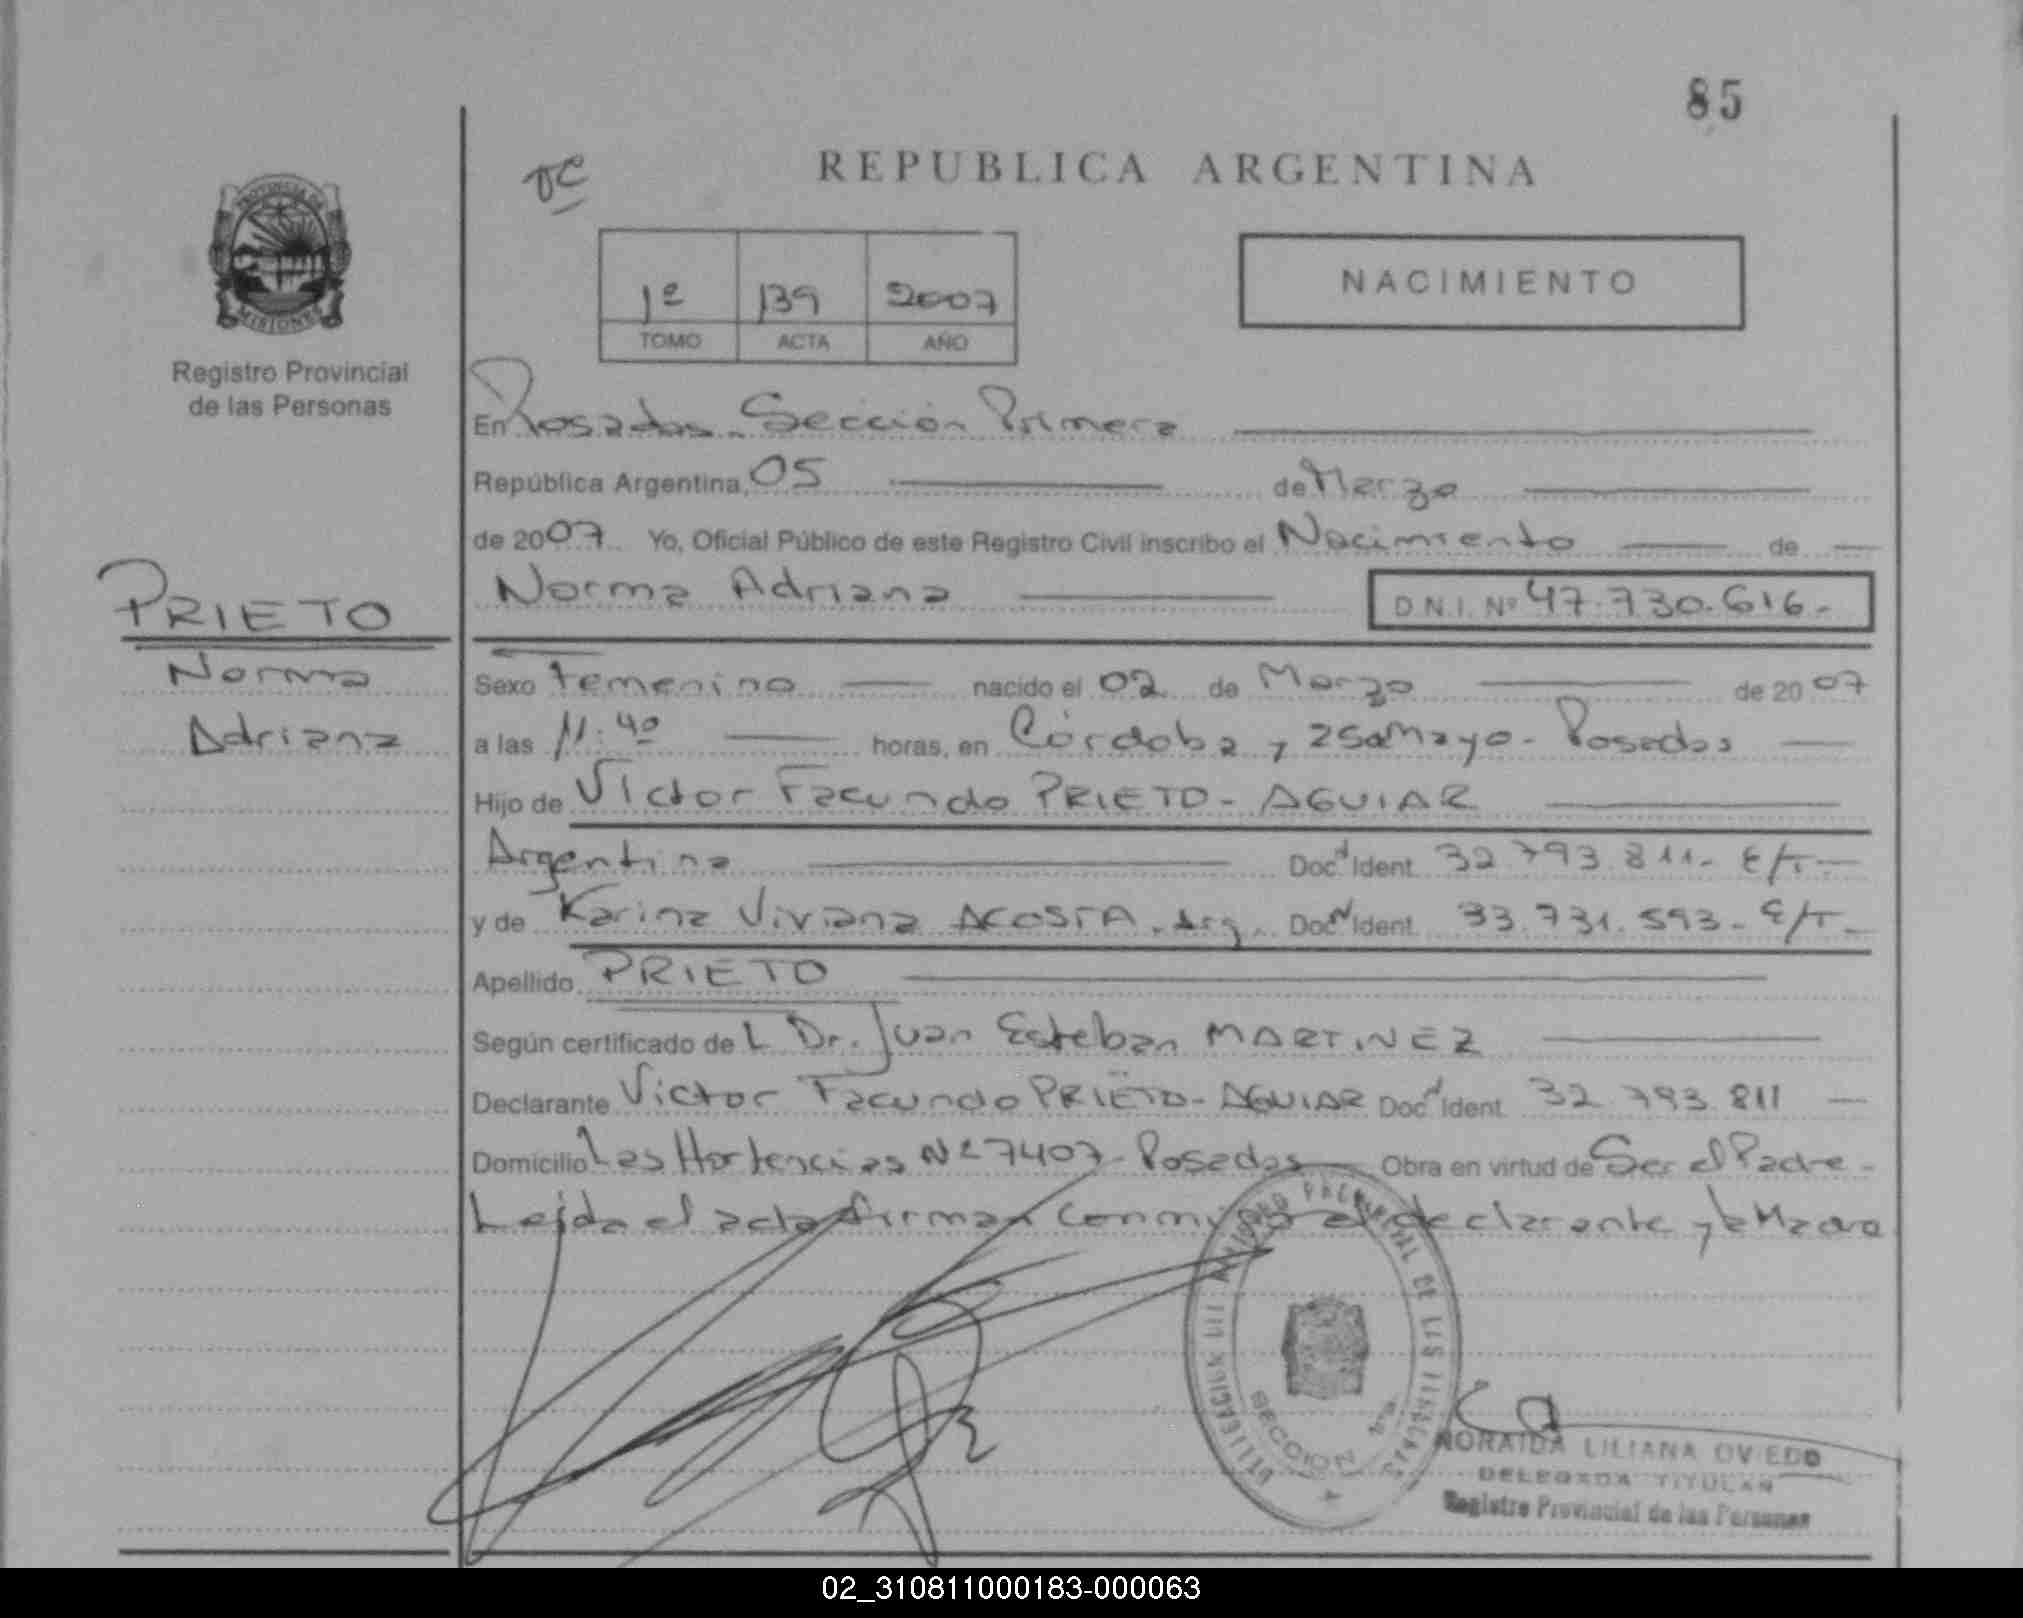 85
REPUBLICA ARGENTINA
PROVINCIA DE
MISIONES
1º 139 2007
TOMO ACTA AÑO
NACIMIENTO
Registro Provincial
de las Personas
En Posadas. Sección Primera
República Argentina, 05 de Marzo
de 2007 Yo, Oficial Público de este Registro Civil inscribo el Nacimiento de
Norma Adriana D.N.I. Nº 47.730.616.-
PRIETO
Norma
Adriana
Sexo Femenino nacido el 02 de Marzo de 2007
a las 11:40 horas, en Córdoba y 25 de Mayo - Posadas
Hijo de Victor Facundo PRIETO - AGUIAR
Argentina Doc. Ident. 32.793.811.- E/T.-
y de Karina Viviana ACOSTA. Arg. Doc. Ident. 33.731.593.- E/T.-
Apellido PRIETO
Según certificado de L Dr. Juan Esteban MARTINEZ
Declarante Victor Facundo PRIETO - AGUIAR Doc. Ident. 32.793.811
Domicilio Las Hortencias Nº 7407 - Posadas Obra en virtud de Ser el Padre.-
Leida el acta firman conmigo el declarante y la Madre
DELEGACION DEL REGISTRO PROVINCIAL DE LAS PERSONAS
SECCION 1ra
NORAIDA LILIANA OVIEDO
DELEGADA TITULAR
Registro Provincial de las Personas
02_310811000183-000063